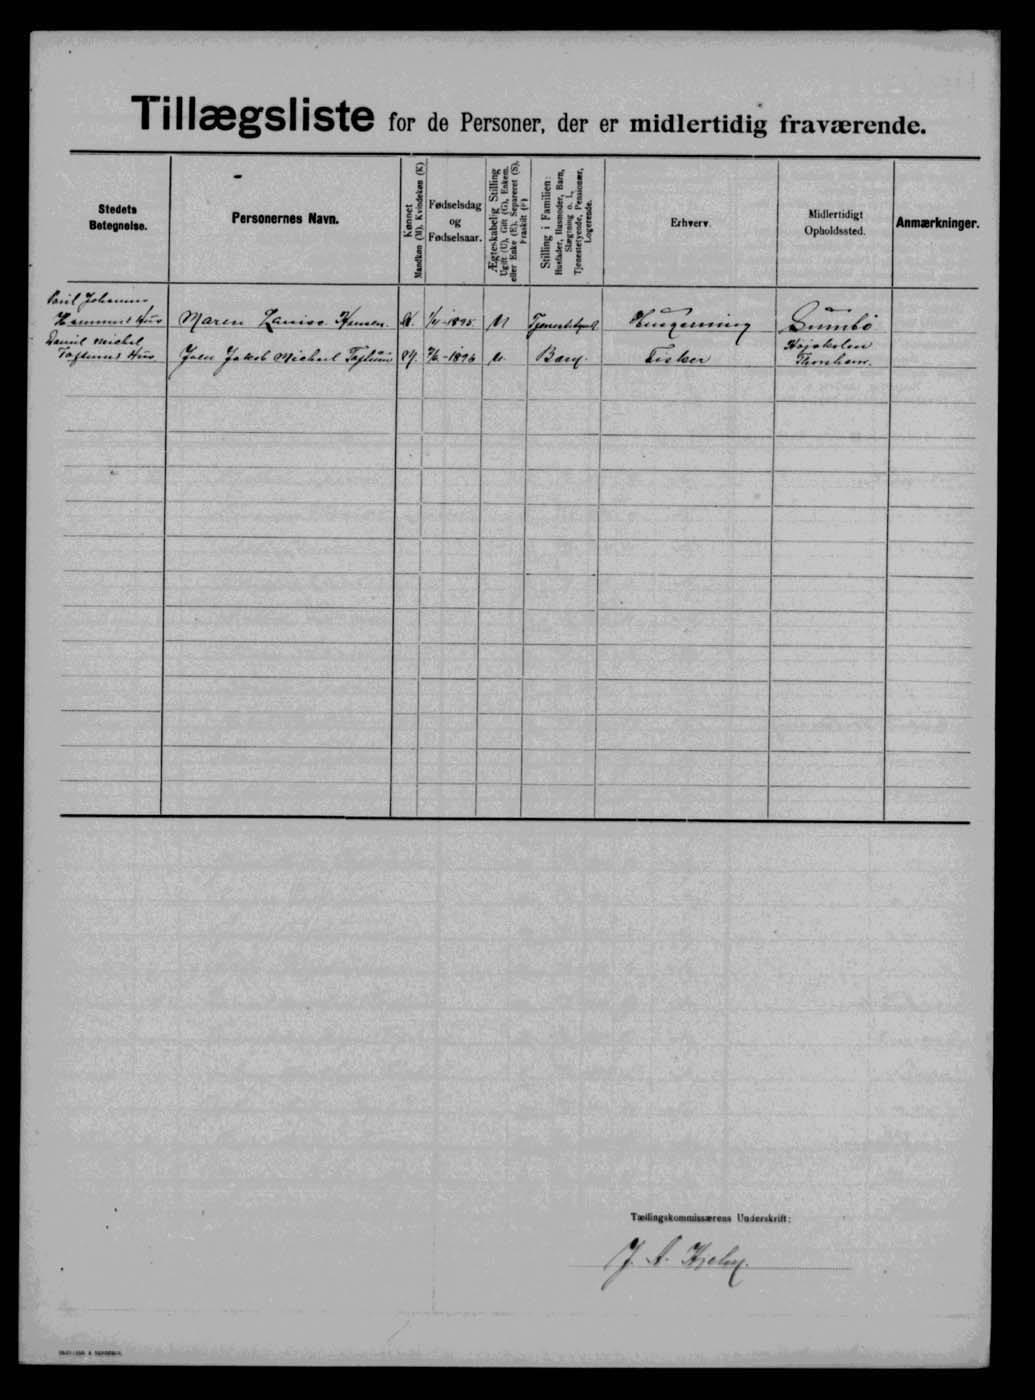 Tillægsliste for de Personer, der er midlertidig fraværende.
Stedets Betegnelse.
Personernes Navn.
Kønnet
Mandkøn (M), Kvindekøn (K)
Fødselsdag
og
Fødselsaar.
Ægteskabelig Stilling
Ugift (U), Gift (G), Enkem.
eller Enke (E), Separeret (S),
Fraskilt (F)
Stilling i Familien:
Husfader, Husmoder, Barn,
Slægtning o. l.,
Tjenestetyende, Pensionær,
Logerende.
Erhverv.
Midlertidigt
Opholdssted.
Anmærkninger.
Johannes
Hus Maren K. 1895 U Sumbø
Daniel Michel
Hus Joen Jakob Michael M. 1896 U. Barn. Fisker Højskolen
Thorshavn.
Tællingskommissærens Underskrift:
J. A.